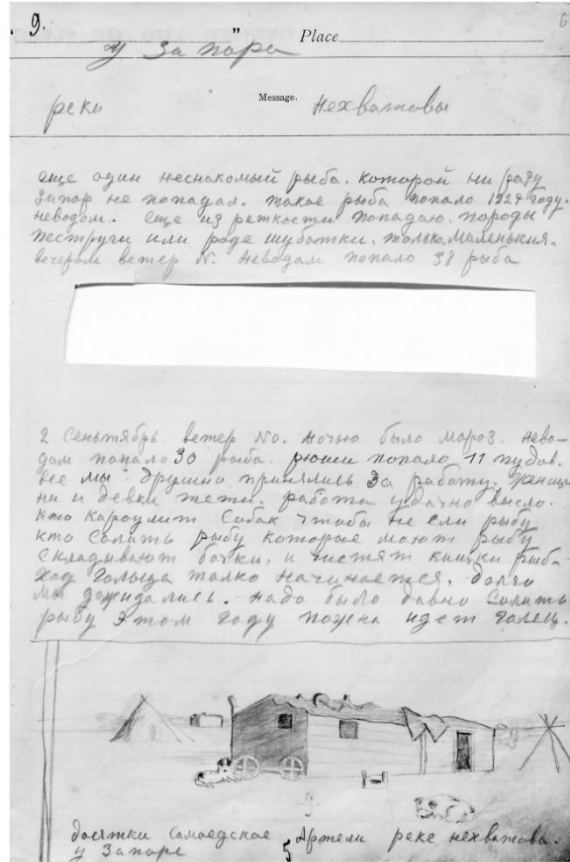 9. " Place 6
у запора
реки Message. Нехватовы
еще один неснакомый рыба. которой ни разу
запор не попадал. такое рыба попало 1924 году.
неводом. еще из реткости попадаю. породы
пестручи или роде шубатки. только. маленькия.
вечером ветер N. неводам попало 38 рыба
2 сеньтябрь ветер NO. ночью было мороз. нево-
дам попало 30 рыба. рюши попало 11 пудов.
все мы друшно принялись за работу.
ни и девки тети. работа удачно высло.
кто кароулит собак чтоба не ели рыбу
кто солить рыбу которые моют рыбу
складивают бочки, и чистят кишки рыба
ход гольца талко начинается, долго
мы дожидались. надо было давно солить
рыбу этом году позна идет галец.
Самоедское Артели реке нехватова.
у запоре 5